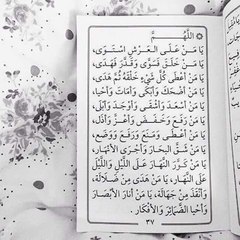 اللّٰهُمَّ
يَا مَنْ عَلَى الْعَرْشِ اسْتَوَى،
يَا مَنْ خَلَقَ فَسَوَّى وَقَدَّرَ فَهَدَى،
يَا مَنْ أَعْطَى كُلَّ شَيْءٍ خَلْقَهُ ثُمَّ هَدَى،
يَا مَنْ أَضْحَكَ وَأَبْكَى وَأَمَاتَ وَأَحْيَا،
يَا مَنْ أَسْعَدَ وَأَشْقَى وَأَوْجَدَ وَأَبْلَى،
يَا مَنْ رَفَعَ وَخَفَضَ، وَأَعَزَّ وَأَذَلَّ،
يَا مَنْ أَعْطَى وَمَنَعَ وَرَفَعَ وَوَضَعَ،
يَا مَنْ شَقَّ الْبِحَارَ وَأَجْرَى الْأَنْهَارَ،
يَا مَنْ كَوَّرَ النَّهَارَ عَلَى اللَّيْلِ وَاللَّيْلَ
عَلَى النَّهَارِ، يَا مَنْ هَدَى مِنْ ضَلَالَةٍ،
وَأَنْقَذَ مِنْ جَهَالَةٍ، يَا مَنْ أَنَارَ الْأَبْصَارَ
وَأَحْيَا الضَّمَائِرَ وَالْأَفْكَارَ.
٣٧